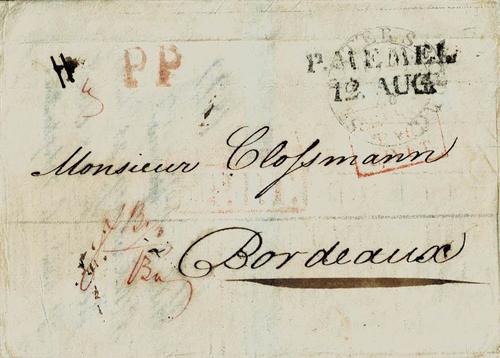 PP
P. MEMEL
12. AUG.
Monsieur Clossmann
Bordeaux